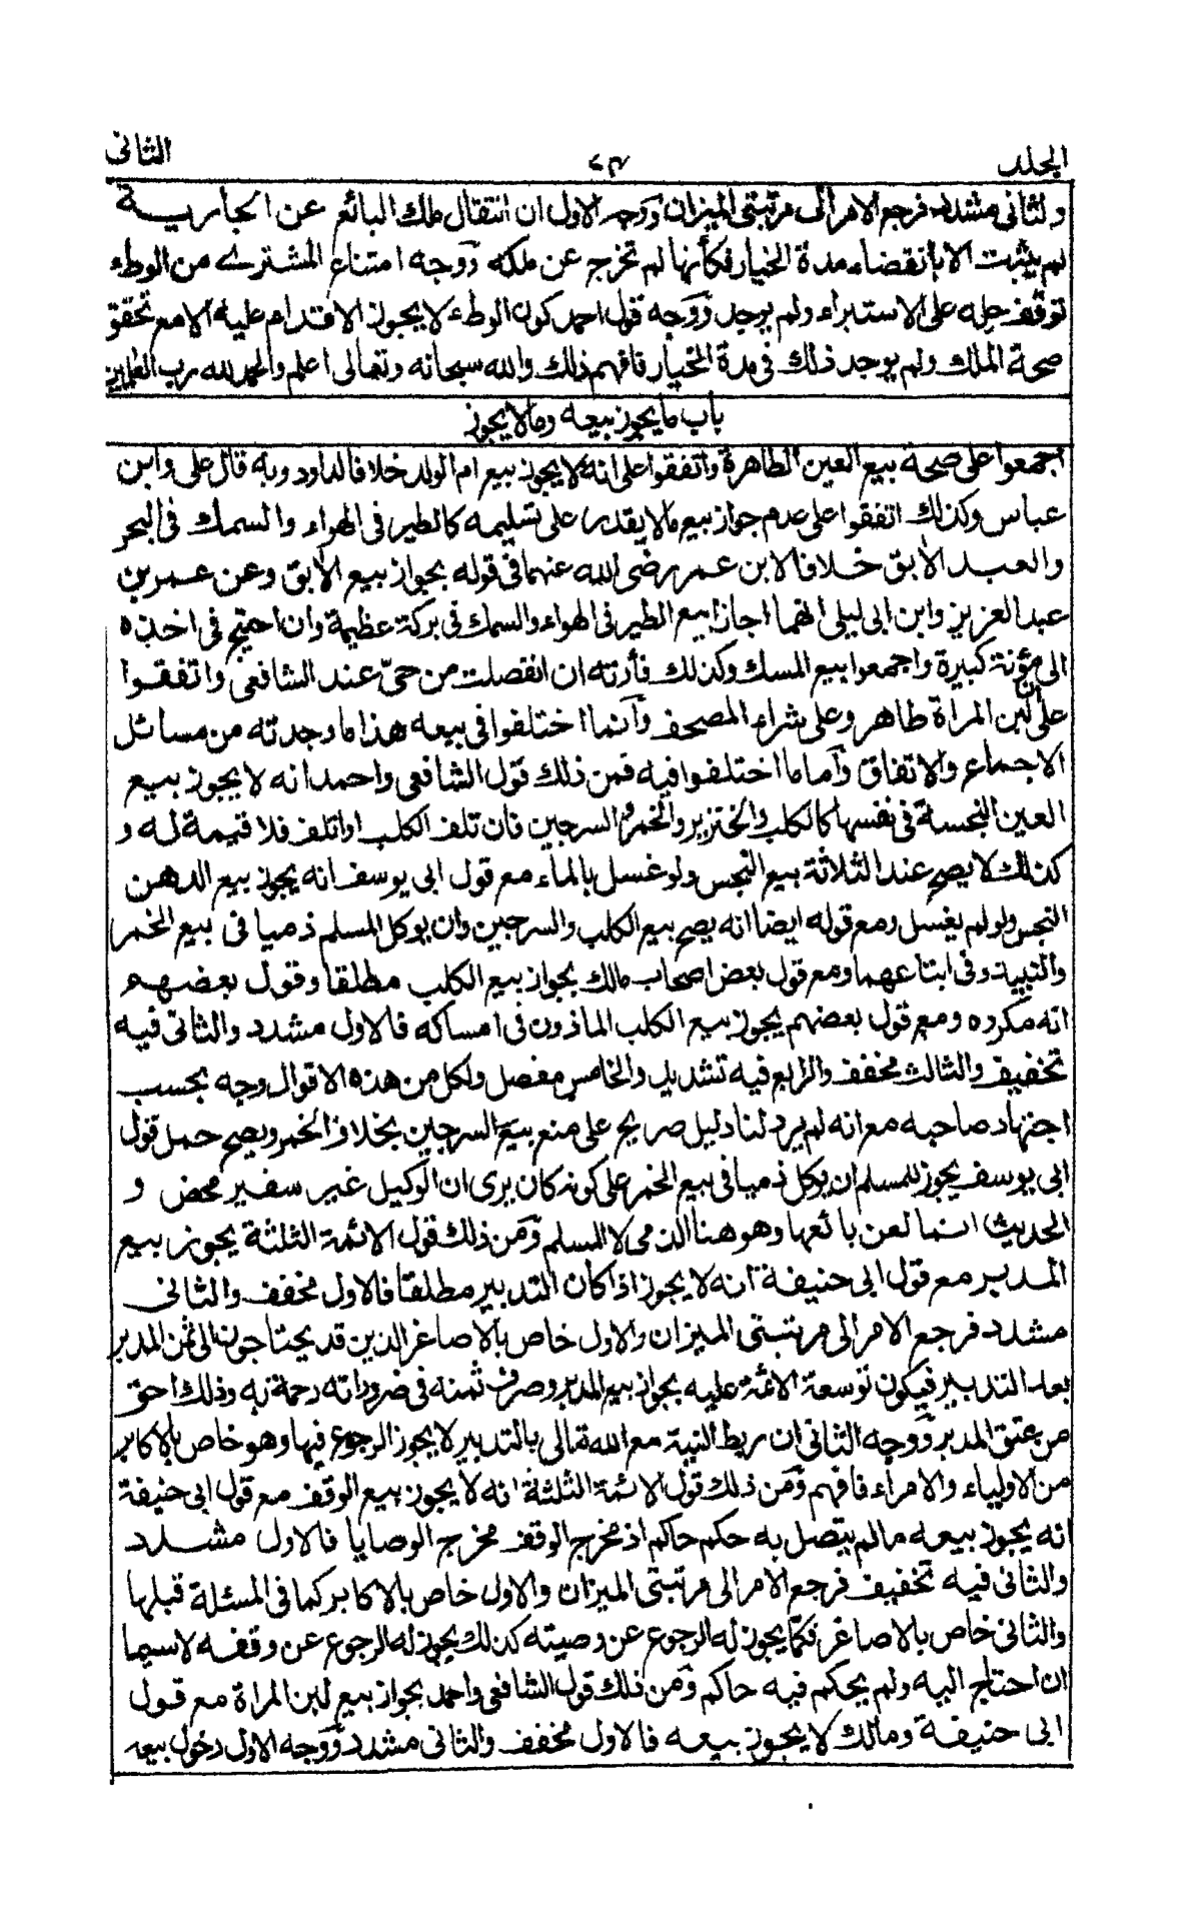 الجلد ٧٣ الثانى
والثانى مشدد فرجع الامر الى مرتبتى الميزان ووجه الاول ان انتقال ملك البائع عن الجارية
لم يثبت الا بانقضاء مدة الخيار فكأنها لم تخرج عن ملكه ووجه امتناع المشترى من الوطء
توقف حله على الاستبراء ولم يوجد ووجه قول احمد كون الوطء لا يجوز الاقدام عليه الا مع تحقق
صحة الملك ولم يوجد ذلك فى مدة الخيار فافهم ذلك والله سبحانه وتعالى اعلم والحمد لله رب العلمين
باب ما يجوز بيعه وما لا يجوز
اجمعوا على صحة بيع العين الطاهرة واتفقوا على انه لا يجوز بيع ام الولد خلافا لداود وبه قال على وابن
عباس وكذلك اتفقوا على عدم جواز بيع ما لا يقدر على تسليمه كالطير فى الهواء والسمك فى البحر
والعبد الآبق خلافا لابن عمر رضى الله عنهما فى قوله بجواز بيع الآبق وعن عمر بن
عبد العزيز وابن ابى ليلى انهما اجازا بيع الطير فى الهواء والسمك فى بركة عظيمة وان احتيج فى اخذه
الى مؤنة كبيرة واجمعوا بيع المسك وكذلك فأرته ان انفصلت من حىّ عند الشافعى واتفقوا
على ان لبن المراة طاهر وعلى شراء المصحف وأنما اختلفوا فى بيعه هذا ما وجدته من مسائل
الاجماع والاتفاق وأما ما اختلفوا فيه فمن ذلك قول الشافعى واحمد انه لا يجوز بيع
العين النجسة فى نفسها كالكلب والخنزير والخمر والسرجين فان تلف الكلب او اتلف فلا قيمة له و
كذلك لا يصح عند الثلاثة بيع النجس ولو غسل بالماء مع قول ابى يوسف انه يجوز بيع الدهن
النجس ولو لم يغسل ومع قوله ايضا انه يصح بيع الكلب والسرجين وان يوكل المسلم ذميا فى بيع الخمر
والنبيذ وفى ابتاعهما ومع قول بعض اصحاب مالك بجواز بيع الكلب مطلقا وقول بعضهم
انه مكروه ومع قول بعضهم يجوز بيع الكلب الماذون فى امساكه فالاول مشدد والثانى فيه
تخفيف والثالث مخفف والرابع فيه تشديد والخامس مفصل ولكل من هذه الاقوال وجه بحسب
اجتهاد صاحبه مع انه لم يرد لنا دليل صريح على منع بيع السرجين بخلاف الخمر ويصح حمل قول
ابى يوسف يجوز للمسلم ان يوكل ذميا فى بيع الخمر على كونه كان يرى ان الوكيل غير سفير محض و
الحديث انما لعن بائعها وهو هنا الذمى لا المسلم ومن ذلك قول الائمة الثلثة يجوز بيع
المدبر مع قول ابى حنيفة انه لا يجوز اذا كان التدبير مطلقا فالاول مخفف والثانى
مشدد فرجع الامر الى مرتبتى الميزان والاول خاص بالاصاغر الذين قد يحتاجون الى ثمن المدبر
بعد التدبير فيكون توسعة الائمة عليه بجواز بيع المدبر وصرف ثمنه فى ضروراته رحمة به وذلك احق
من عتق المدبر ووجه الثانى ان ربط النية مع الله تعالى بالتدبير لا يجوز الرجوع فيها وهو خاص بالاكابر
من الاولياء والامراء فافهم ومن ذلك قول الائمة الثلثة انه لا يجوز بيع الوقف مع قول ابى حنيفة
انه يجوز بيعه ما لم يتصل به حكم حاكم اذ مخرج الوقف مخرج الوصايا فالاول مشدد
والثانى فيه تخفيف فرجع الامر الى مرتبتى الميزان والاول خاص بالاكابر كما فى المسئلة قبلها
والثانى خاص بالاصاغر فكما يجوز له الرجوع عن وصيته كذلك يجوز له الرجوع عن وقفه لاسيما
ان احتاج اليه ولم يحكم فيه حاكم ومن ذلك قول الشافعى واحمد بجواز بيع لبن المراة مع قول
ابى حنيفة ومالك لا يجوز بيعه فالاول مخفف والثانى مشدد ووجه الاول دخول بيعه